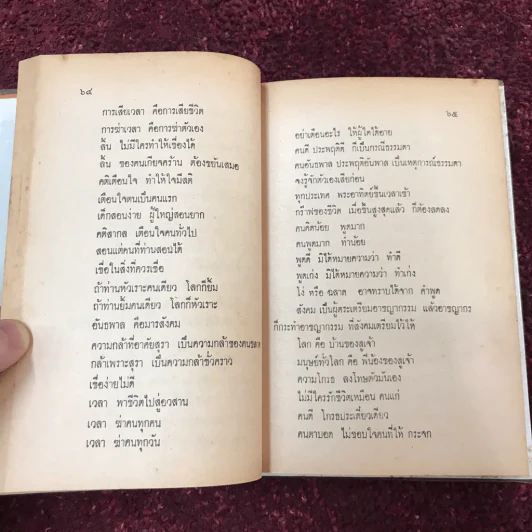 ๖๔
การเสียเวลา คือการเสียชีวิต
การฆ่าเวลา คือการฆ่าตัวเอง
ลิ้น ไม่มีใครทำให้เชื่องได้
ลิ้น ของคนเกียจคร้าน ต้องขยันเสมอ
คติเตือนใจ ทำให้ใจมีสติ
เตือนใจตนเป็นคนแรก
เด็กสอนง่าย ผู้ใหญ่สอนยาก
คติสากล เตือนใจคนทั่วไป
สอนแต่คนที่ท่านสอนได้
เชื่อในสิ่งที่ควรเชื่อ
ถ้าท่านหัวเราะคนเดียว โลกก็ยิ้ม
ถ้าท่านยิ้มคนเดียว โลกก็หัวเราะ
อันธพาล คือมารสังคม
ความกล้าที่อาศัยสุรา เป็นความกล้าของคนขลาด
กล้าเพราะสุรา เป็นความกล้าชั่วคราว
เชื่อง่ายไม่ดี
เวลา พาชีวิตไปสู่อวสาน
เวลา ฆ่าคนทุกคน
เวลา ฆ่าคนทุกวัน
๖๕
อย่าเตือนอะไร ให้ผู้ใดได้อาย
คนดี ประพฤติดี ก็เป็นกรณีธรรมดา
คนอันธพาล ประพฤติอันพาล เป็นเหตุการณ์ธรรมดา
จงรู้จักตัวเองเสียก่อน
ทุกประเทศ พระอาทิตย์ขึ้นเวลาเช้า
กร๊าฟของชีวิต เมื่อขึ้นสูงสุดแล้ว ก็ต้องลดลง
คนคิดน้อย พูดมาก
คนพูดมาก ทำน้อย
พูดดี มิได้หมายความว่า ทำดี
พูดเก่ง มิได้หมายความว่า ทำเก่ง
โง่ หรือ ฉลาด อาจทราบได้จาก คำพูด
สังคม เป็นผู้ตระเตรียมอาชญากรรม แล้วอาชญากร
ก็กระทำอาชญากรรม ที่สังคมเตรียมไว้ให้
โลก คือ บ้านของสูเจ้า
มนุษย์ทั่วโลก คือ พี่น้องของสูเจ้า
ความโกรธ ลงโทษตัวมันเอง
ไม่มีใครรักชีวิตเหมือน คนแก่
คนดี โกรธประเดี๋ยวเดียว
คนตาบอด ไม่ขอบใจคนที่ให้ กระจก